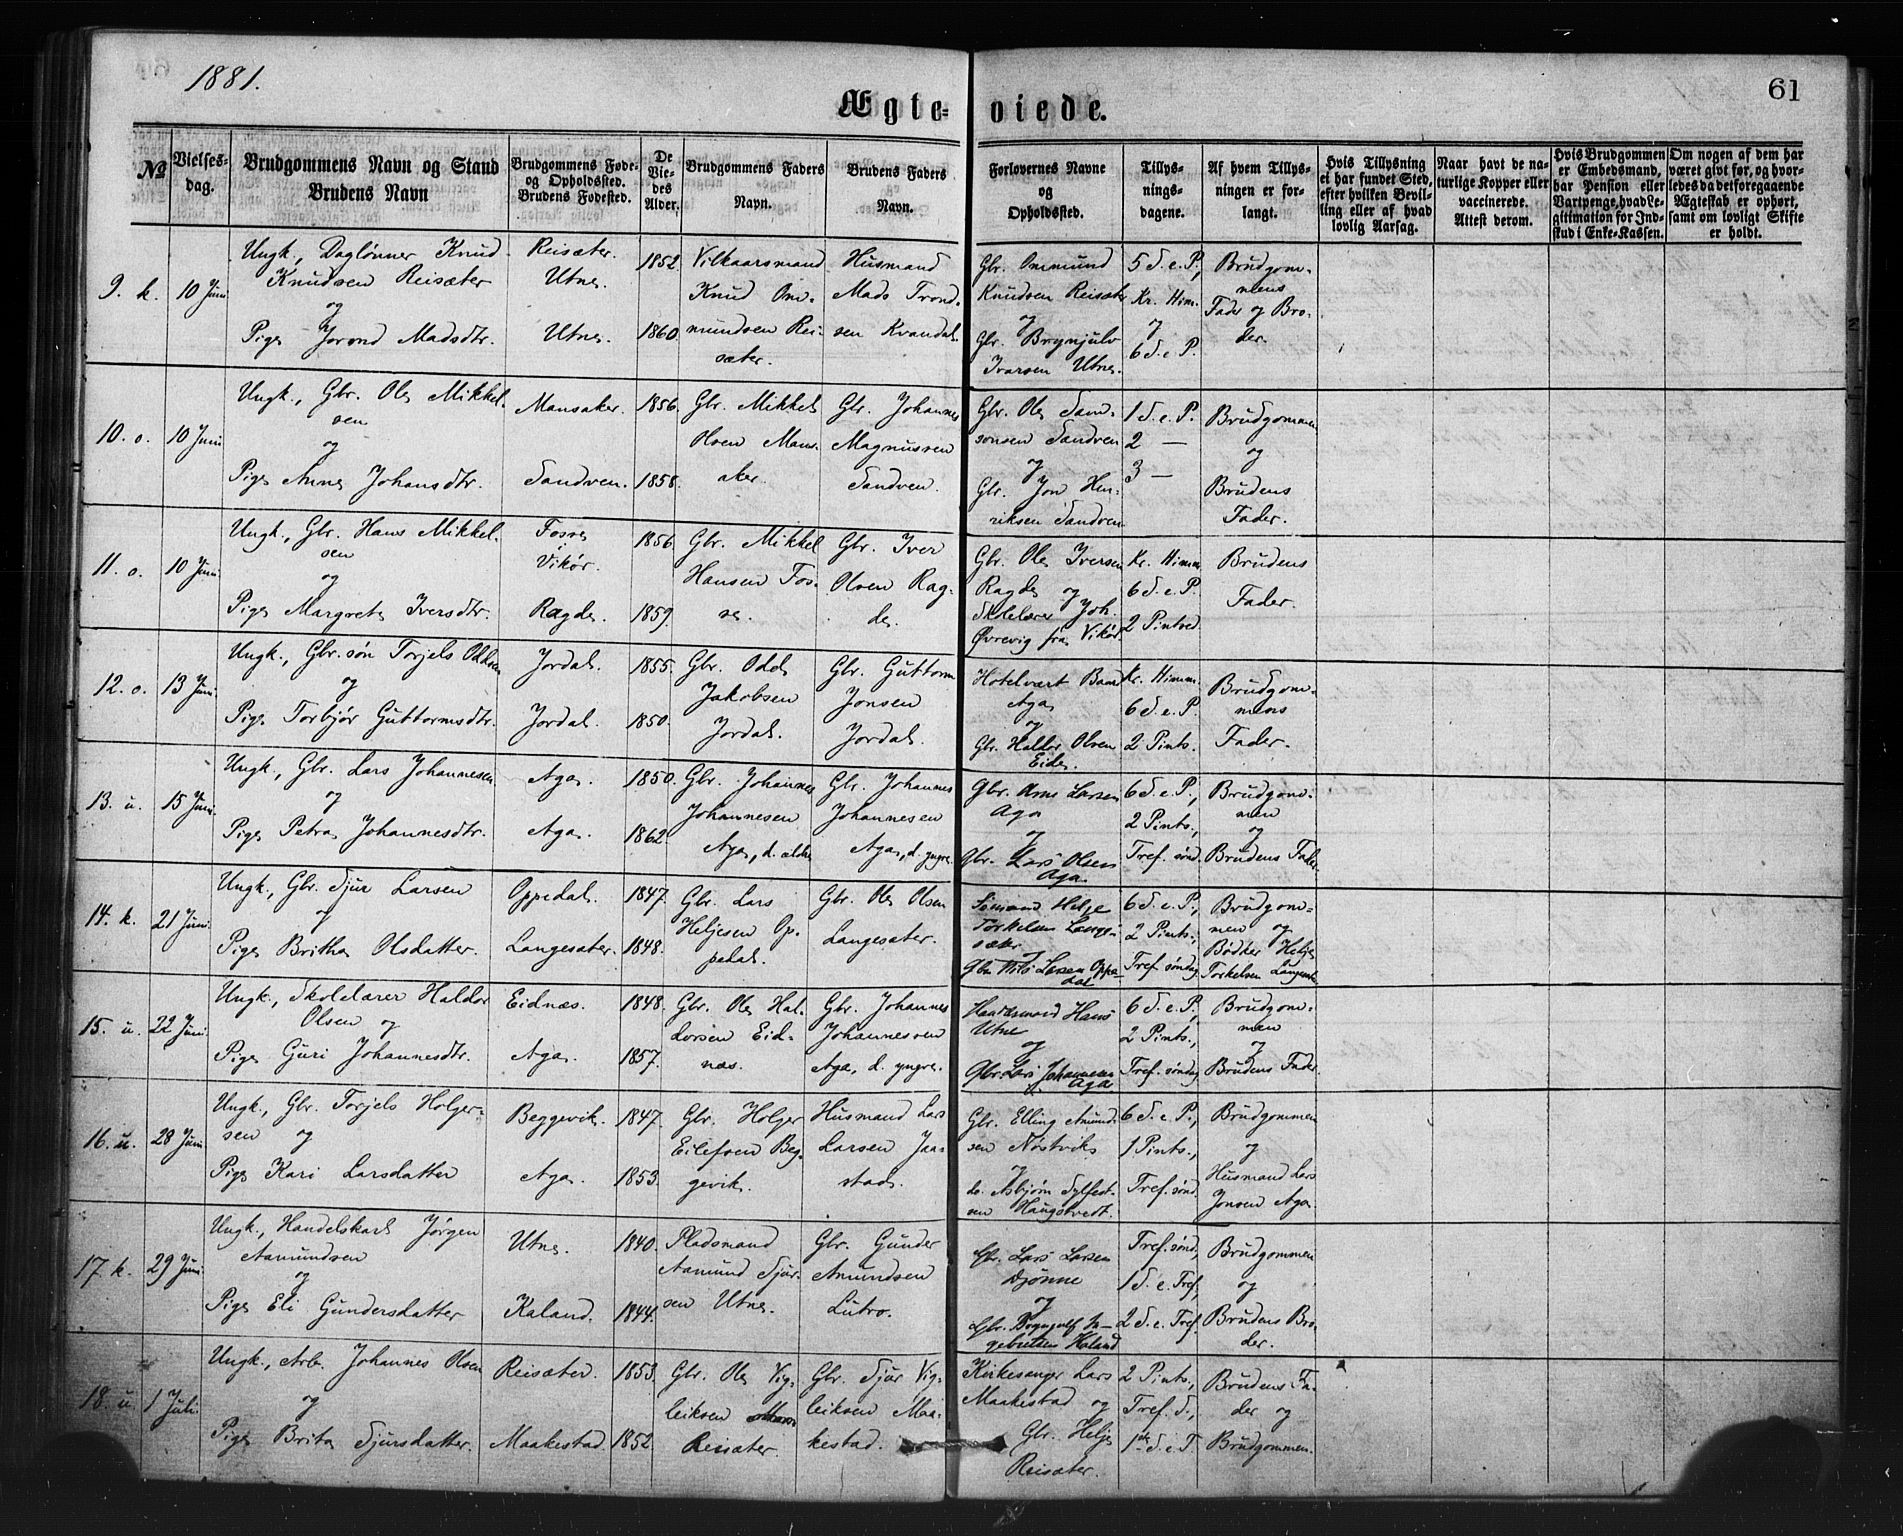 1881.
61
Ægte- viede.
№
Vielses-
dag.
Brudgommens Navn og Stand
Brudens Navn
Brudgommens Føde-
og Opholdssted.
Brudens Fødested.
De
Vie-
des
Alder.
Brudgommens Faders
Navn.
Brudens Faders
Navn.
Forlovernes Navne
og
Opholdssted.
Tillys-
nings-
dagene.
Af hvem Tillys-
ningen er for-
langt.
Hvis Tillysning
ei har fundet Sted,
efter hvilken Bevil-
ling eller af hvad
lovlig Aarsag.
Naar havt de na-
turlige Kopper eller
vaccinerede.
Attest derom.
Hvis Brudgommen
er Embedsmand,
har Pension eller
Vartpenge, hvad Le-
gitimation for Ind-
skud i Enke-Kassen.
Om nogen af dem har
været givt før, og hvor-
ledes da det foregaaende
Ægteskab er ophørt,
samt om lovligt Skifte
er holdt.
9. k.
10 Juni
Ungk., Daglønner Knud
Knudsen Reisæter
og
Pige Jorond Madsdtr.
Reisæter.
Utne.
Utne.
1852
1860.
Vilkaarsmand
Knud Om-
mundsen Rei-
sæter.
Husmand
Mads Trond-
sen Kvandal.
Gbr. Ommund
Knudsen Reisæter
og
Gbr. Brynjulv
Ivarsen Utne.
5 S. e. P.,
Kr. Him.
og
6 S. e. P.
Brudgom-
mens
Fader og Bro-
der.
10. o.
10 Juni
Ungk., Gbr. Ole Mikkel-
sen
og
Pige Anne Johansdtr.
Mansaker.
Sandven.
1856.
1858.
Gbr. Mikkel
Olsen Mans-
aker.
Gbr. Johannes
Magnussen
Sandven.
Gbr. Ole Sam-
sonsen Sandven
og
Gbr. Jon Hen-
riksen Sandven
1 S. e. P.
2 —
3 —
Brudgommen
og
Brudens
Fader.
11. o.
10 Juni
Ungk., Gbr. Hans Mikkel-
sen
og
Pige Margrete Iversdtr.
Fosse
Vikør.
Ragde.
1856.
1859.
Gbr. Mikkel
Hansen Fos-
se.
Gbr. Iver
Olsen Rag-
de.
Gbr. Ole Iversen
Ragde og
Skolelærer Joh.
Øvrevig fra Vikør
Kr. Himm.
6 S. e. P.
2 Pintsd.
Brudens
Fader.
12. o.
13 Juni.
Ungk., Gbr.søn Torjels Oddsen
og
Pige Torbjør Guttormsdtr.
Jordal.
Jordal.
1855.
1850.
Gbr. Odd
Jakobsen
Jordal.
Gbr. Guttorm
Jonsen
Jordal.
Hotelvært Baard
Aga
og
Gbr. Haldor Olsen
Eide.
Kr. Himm.
6 S. e. P.
2 Pints.
Brudgom-
mens
Fader.
13. u.
15 Juni.
Ungk., Gbr. Lars Johannesen
og
Pige Petra Johannesdtr.
Aga.
Aga.
1850.
1862
Gbr. Johannes
Johannesen
Aga, d. ældre
Gbr. Johannes
Johannesen
Aga, d. yngre.
Gbr. Arne Larsen
Aga
og
Gbr. Lars Olsen
Aga.
6 S. e. P.,
2 Pints.,
Tref. sønd.
Brudgom-
men
og
Brudens Fader.
14. k.
21 Juni.
Ungk., Gbr. Sjur Larsen
og
Pige Britha Olsdatter
Oppedal.
Langesæter.
1847.
1848.
Gbr. Lars
Heljesen Op-
pedal.
Gbr. Ole Olsen
Langesæter.
Sømand Helje
Torkelsen Lange-
sæter
Gbr. Nils Larsen Oppe-
dal
6 S. e. P.,
2 Pints.,
Tref. søndag
Brudgom-
men og
Bødker Helje
Torkelsen Langesæt.
15. u.
22 Juni.
Ungk., Skolelærer Haldor
Olsen og
Pige Guri Johannesdtr.
Eidnæs.
Aga.
1848.
1857.
Gbr. Ole Hal-
dorsen Eid-
næs.
Gbr. Johannes
Johannessen
Aga, d. yngre.
Handelsmand Hans
Utne
og
Gbr. Lars Johannesen
Aga
6 S. e. P.,
2 Pints.,
Tref. søndag
Brudgom-
men
og
Brudens Fader
16. u.
28 Juni.
Ungk., Gbr. Torjels Holjer-
sen og
Pige Kari Larsdatter
Beggevik.
Aga.
1847.
1853.
Gbr. Holjer
Eilefsen Beg-
gevik.
Husmand Lars
Larsen Jaa-
stad.
Gbr. Elling Amund-
sen Nøstvik
og
do. Asbjørn Sylfest-
sen Haugstvedt.
6 S. e. P.,
1 Pints.,
Tref. sønd.
Brudgommen
og
Husmand Lars
Jonsen Aga.
17. k.
29 Juni.
Ungk., Handelskarl Jørgen
Aamundsen
og
Pige Eli Gundersdatter
Utne.
Kaland.
1840.
1844.
Pladsmand
Aamund Sjur-
sen Utne.
Gbr. Gunder
Amundsen
Lutro.
Gbr. Lars Larsen
Djønne
og
Gbr. Brynjulf In-
gebretsen Haland
Tref. sønd.,
1 S. e. Tref.,
2 S. e. Tref.
Brudgommen
og
Brudens Bro-
der.
18. u.
1 Juli.
Ungk., Arb. Johannes Olsen
og
Pige Brita Sjursdatter.
Reisæter.
Maakestad.
1853.
1852.
Gbr. Ole Vig-
leiksen
Reisæter.
Gbr. Sjur Vig-
leiksen Maa-
kestad.
Kirkesanger Lars
Maakestad og
Gbr. Helje
Reisæter.
2 Pints.,
Tref. S.,
1ste S. e. T.
Brudens Fa-
der og
Brudgommen.